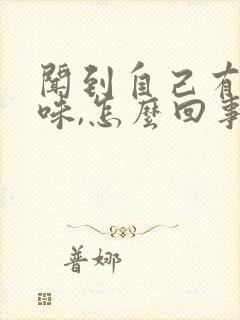 聞到自己有
味,怎麼回事
普娜